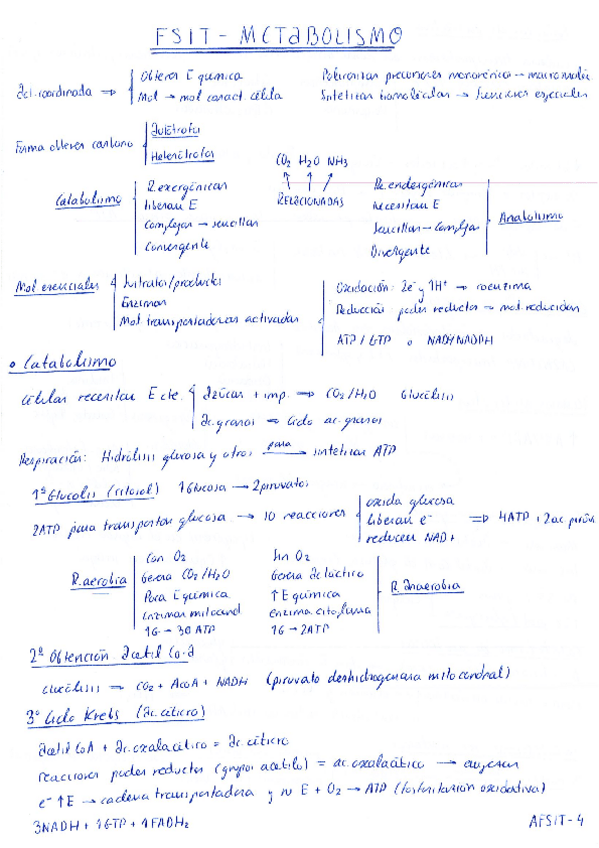 FSIT - METABOLISMO
Act. coordinada ⇒ Obtener E química
Mol → mol caract. célula
Polimerizar precursores monoméricos → macromoléc
Sintetizar biomoléculas → funciones especiales
Forma obtener carbono
Autótrofos
Heterótrofos
CO2 H2O NH3
RELACIONADAS
Catabolismo
R. exergónicas
liberan E
Complejas → sencillas
Convergente
R. endergónicas
necesitan E
Sencillas → Complejas
Divergente
Anabolismo
Mol esenciales
Sustratos/productos
Enzimas
Mol transportadoras activadas
Oxidación: 2e- y 1H+ → coenzima
Reducción poder reductor → mol. reducidas
ATP / GTP o NADH/NADPH
• Catabolismo
Células necesitan E cte.
Azúcar + imp. ⇒ CO2/H2O Glucólisis
Ac. grasos ⇒ Ciclo ac. grasos
Respiración: Hidrólisis glucosa y otros para → sintetizar ATP
1º Glucolis (citosol) 1 Glucosa → 2 piruvatos
2ATP para transportar glucosa → 10 reacciones
oxida glucosa
liberan e-
reducen NAD+
⇒ 4ATP + 2 ac. pirúv
R. aerobia
Con O2
Genera CO2/H2O
Para E química
Enzimas mitocond
1G → 30 ATP
Sin O2
Genera Ac láctico
↑ E química
Enzima citoplasma
1G → 2ATP
R. anaerobia
2º Obtención Acetil Co-A
Glucólisis ⇒ CO2 + AcoA + NADH (piruvato deshidrogenasa mitocondrial)
3º Ciclo Krebs (Ac. cítrico)
Acetil CoA + Ac. oxalacético = Ac. cítrico
reacciones poder reductor (grupos acetilo) = ac. oxalacético →
e- ↑E → cadena transportadora y su E + O2 → ATP (fosforilación oxidativa)
3NADH + 1GTP + 1FADH2
AFSIT-4